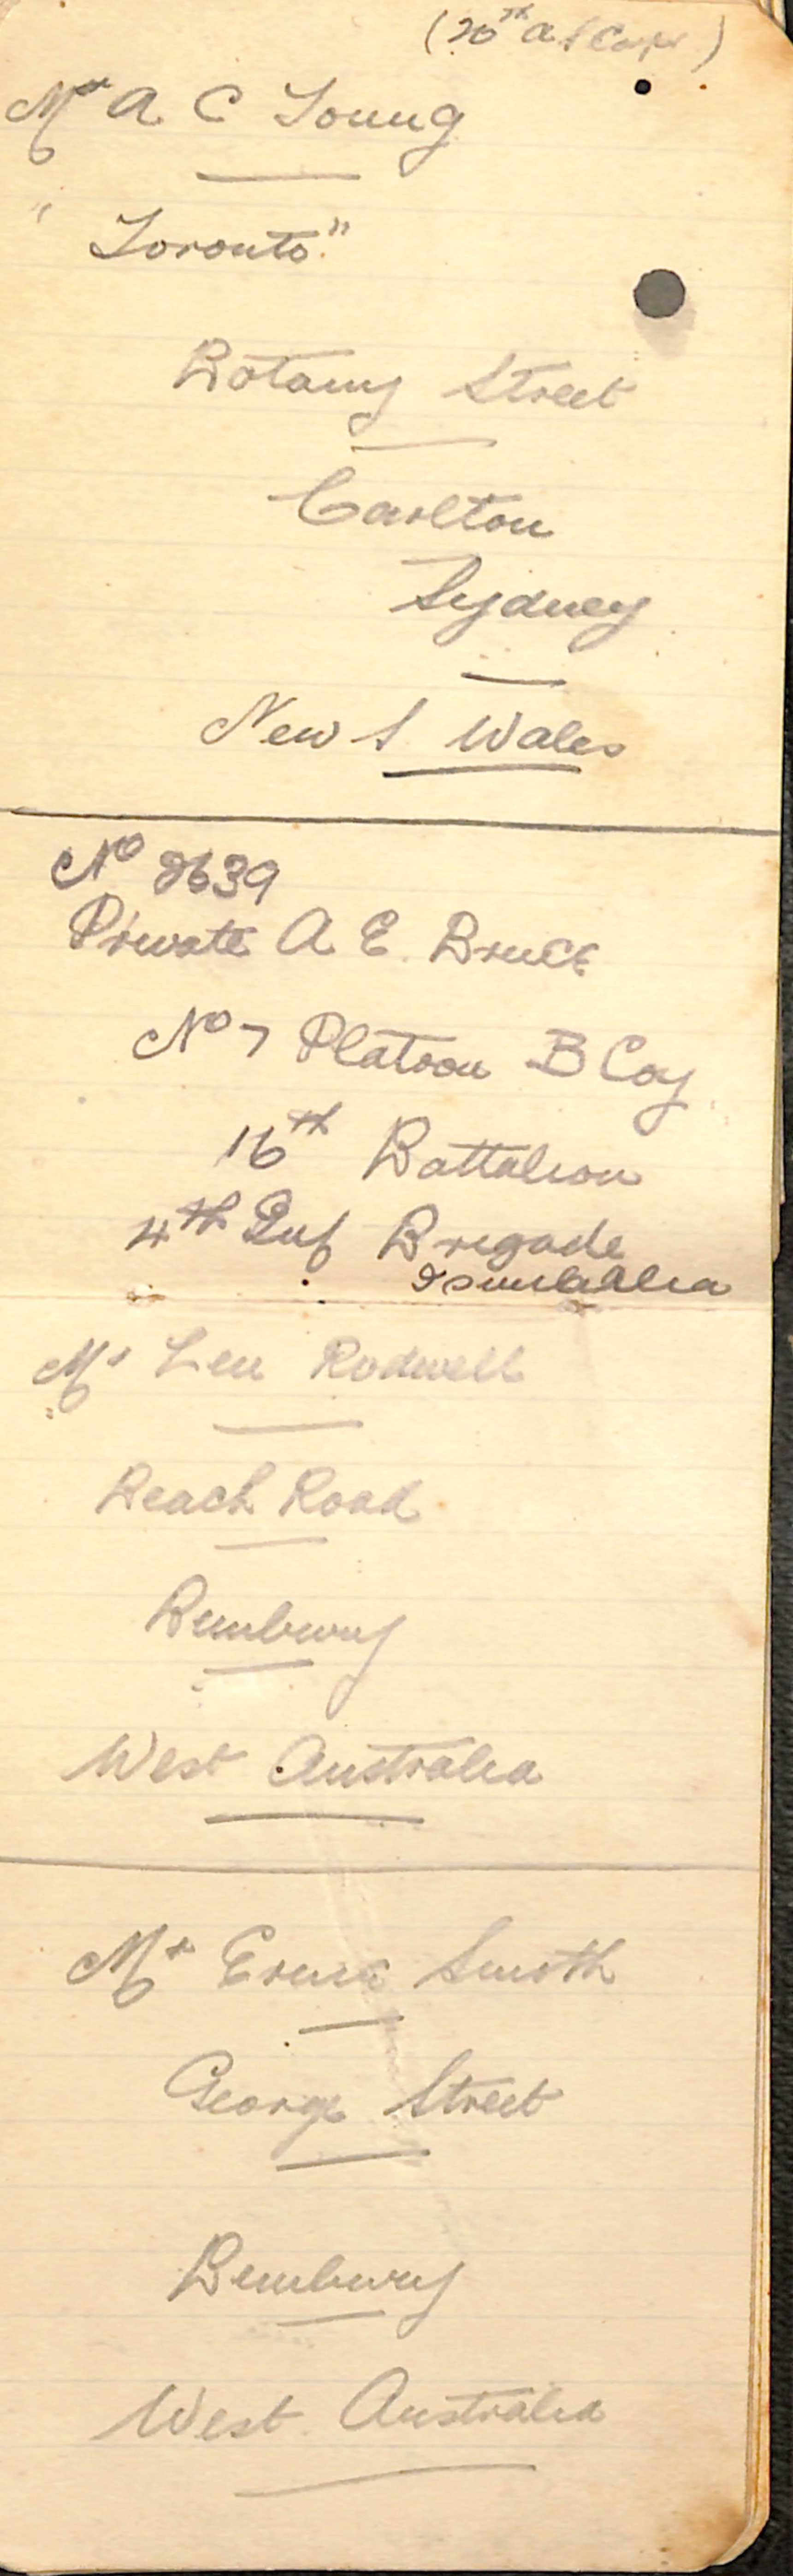 (20th A / Corps)
Mr A C Young
"Toronto"
Botany Street
Carlton
Sydney
New S Wales
No 2639
Private A E Bruce
No 7 Platoon B Coy
16th Battalion
4th Inf Brigade
Mr Len Rodwell
Beach Road
Bunbury
West Australia
Mr Ernie Smith
George Street
Bunbury
West Australia